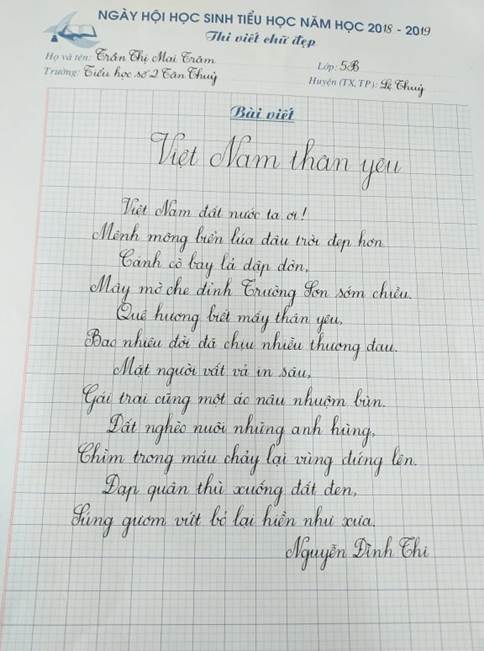 NGÀY HỘI HỌC SINH TIỂU HỌC NĂM HỌC 2018 - 2019
Thi viết chữ đẹp
Họ và tên: Trần Thị Mai Trâm Lớp: 5B
Trường: Tiểu học số 2 Tân Thuỷ Huyện (TX, TP): Lệ Thuỷ
Bài viết
Việt Nam thân yêu
Việt Nam đất nước ta ơi!
Mênh mông biển lúa đâu trời đẹp hơn.
Cánh cò bay lả dập dờn,
Mây mờ che đỉnh Trường Sơn sớm chiều.
Quê hương biết mấy thân yêu,
Bao nhiêu đời đã chịu nhiều thương đau.
Mặt người vất vả in sâu,
Gái trai cũng một áo nâu nhuộm bùn.
Đất nghèo nuôi những anh hùng,
Chìm trong máu chảy lại vùng đứng lên.
Đạp quân thù xuống đất đen,
Súng gươm vứt bỏ lại hiền như xưa.
Nguyễn Đình Thi